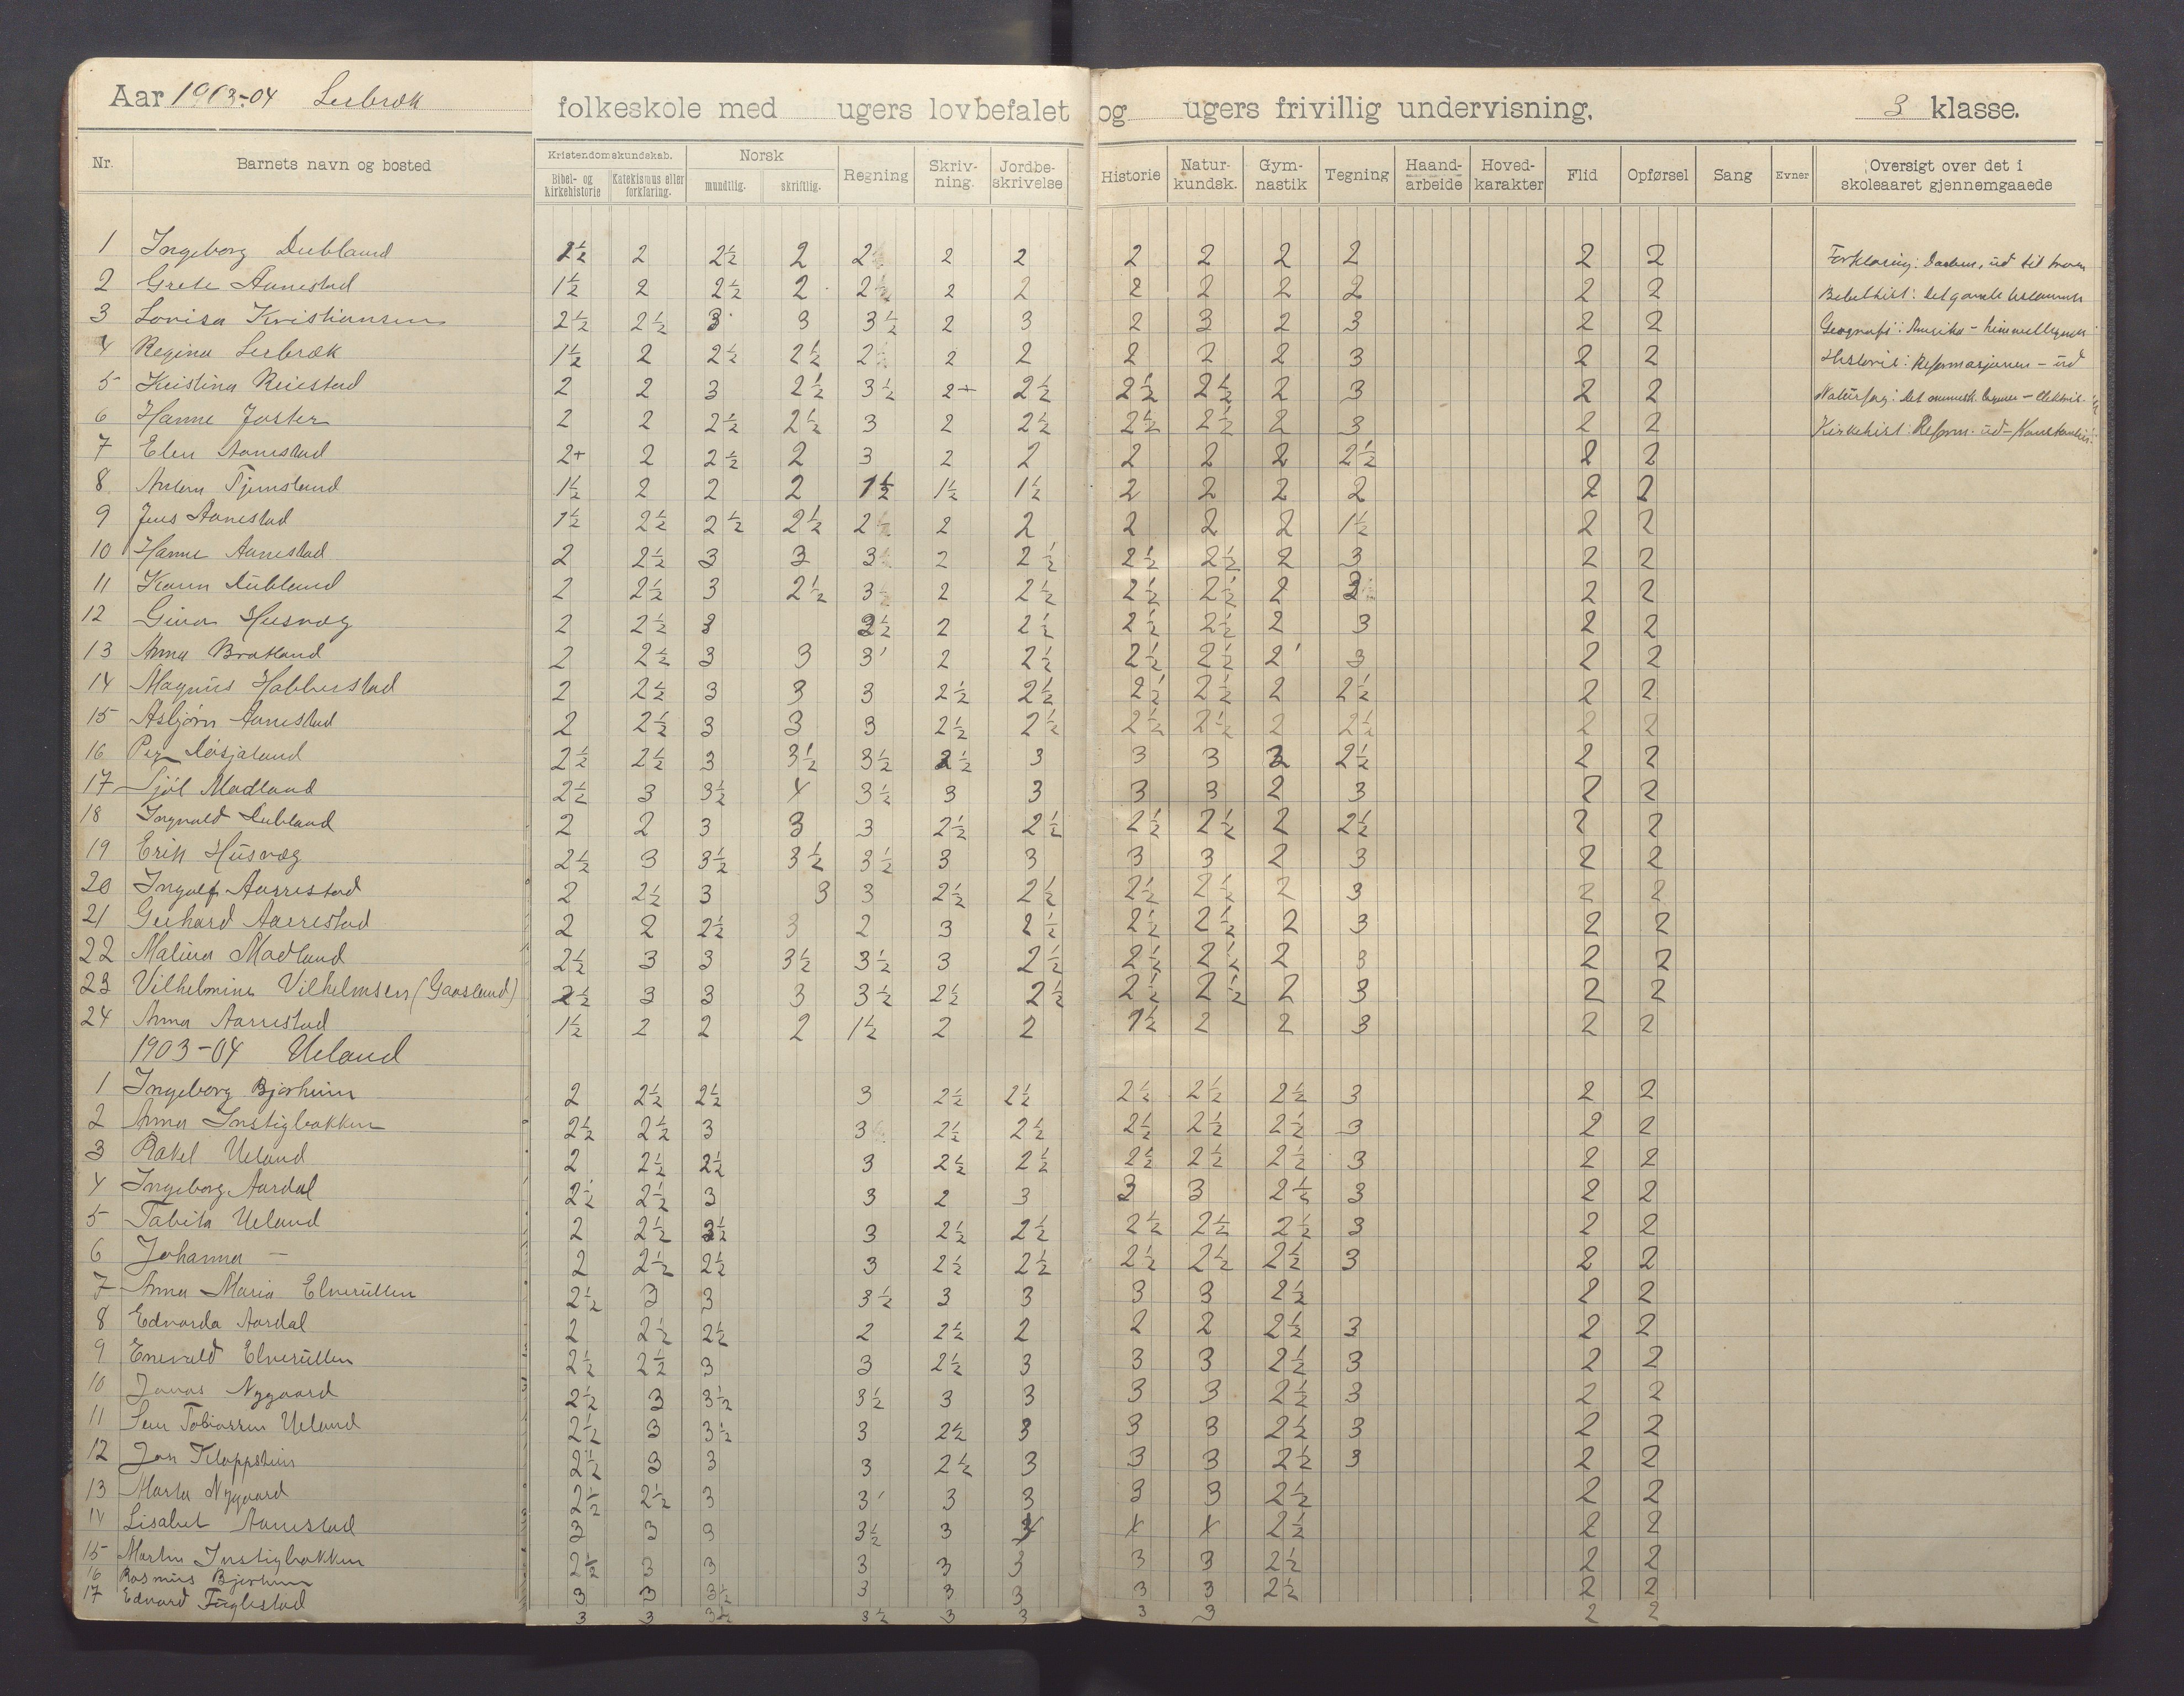 Aar 1903-04 Leebræk folkeskole med ugers lovbefalet og ugers frivillig undervisning. 3 klasse.
Nr. Barnets navn og bosted Kristendomskundskab. Bibel- og kirkehistorie Katekismus eller forklaring. Norsk mundtlig. skriftlig. Regning Skriv-ning. Jordbe-skrivelse Historie Natur-kundsk. Gym-nastik Tegning Haand-arbeide Hoved-karakter Flid Opførsel Sang Evner Oversigt over det i skoleaaret gjennemgaaede
1 Ingeborg 2½ 2 2½ 2 2 2 2 2 2 2 2 2 2 Forklaring:
2 Grete Aarrestad 1½ 2 2½ 2 2 2 2 2 2 2 2 2 2 Bibelhist: Det gamle
3 Lovisa Kristiansen 2½ 2½ 3 3 3½ 2 3 2 3 2 3 2 2 Geografi:
4 Regina Leebræk 1½ 2 2½ 2½ 2 2 2 2 2 2 3 2 2 Historie: Reformasjonen - ud
5 Kristina 2 2 3 2½ 3½ 2+ 2½ 2½ 2½ 2 3 2 2 Naturfag: Det mennesk. legeme - elektris.
6 Hanne 2 2 2½ 2½ 3 2 2½ 2½ 2½ 2 3 2 2 Kirkehist: Reform. ud -
7 Elen Aarrestad 2+ 2 2½ 2 3 2 2 2 2 2 2½ 2 2
8 Anton 1½ 2 2 2 1½ 1½ 1½ 2 2 2 2 2 2
9 Jens Aarrestad 1½ 2½ 2½ 2½ 2 2 2 2 2 2 1½ 2 2
10 Hanne Aarrestad 2 2½ 3 3 3 2 2½ 2½ 2½ 2 3 2 2
11 Karen 2 2½ 3 2½ 3 2 2½ 2½ 2½ 2 2 2
12 Gina Husvæg 2 2½ 3 2½ 2 2½ 2½ 2½ 2 3 2 2
13 Anna Bratland 2 2½ 3 3 3 2 2½ 2½ 2½ 2 3 2 2
14 Magnus Habberstad 2 2½ 3 3 3 2½ 2½ 2½ 2½ 2 2½ 2 2
15 Asbjørn Aarrestad 2 2½ 3 3 3 2½ 2½ 2½ 2½ 2 2½ 2 2
16 Per 2½ 2½ 3 3½ 3½ 2½ 3 3 3 2 2½ 2 2
17 Madland 2½ 3 3½ 4 3½ 3 3 3 3 2 3 2 2
18 Ingvald 2 2 3 3 3 2½ 2½ 2½ 2½ 2 2½ 2 2
19 Erik Husvæg 2½ 3 3½ 3½ 3½ 3 3 3 3 2 3 2 2
20 Ingolf Aarrestad 2 2½ 3 3 3 2½ 2½ 2½ 2½ 2 3 2 2
21 Gerhard Aarrestad 2 2 2½ 3 2 3 2½ 2½ 2½ 2 3 2 2
22 Malina Madland 2½ 3 3 3½ 3½ 3 2½ 2½ 2½ 2 3 2 2
23 Vilhelmine Vilhelmsen (Gaasland) 2½ 3 3 3 3½ 2½ 2½ 2½ 2½ 2 3 2 2
24 Anna Aarrestad 1½ 2 2 2 1½ 2 2 1½ 2 2 3 2 2
1903-04 Ueland
1 Ingeborg Bjerheim 2 2½ 2½ 3 2½ 2½ 2½ 2½ 2½ 3 2 2
2 Anna Instigbakken 2½ 2½ 3 3 2½ 2½ 2½ 2½ 2½ 3 2 2
3 Rakel Ueland 2 2½ 2½ 3 2½ 2½ 2½ 2½ 2½ 3 2 2
4 Ingeborg Aardal 2½ 2½ 3 3 2 3 3 3 2½ 3 2 2
5 Tabita Ueland 2 2½ 2½ 3 2½ 2½ 2½ 2½ 2½ 3 2 2
6 Johanna — 2 2½ 2½ 3 2½ 2½ 2½ 2½ 2½ 3 2 2
7 Anna Maria Elverullen 2½ 3 3 3½ 3 3 3 3 2½ 2 2
8 Edvarda Aardal 2 2½ 2½ 2 2½ 2 2 2 2½ 3 2 2
9 Enevald Elverullen 2½ 2½ 3 3 2½ 3 3 3 2½ 3 2 2
10 Jonas Nygaard 2½ 3 3½ 3½ 3 3 3 3 2½ 3 2 2
11 Tobiassen Ueland 2½ 3 3½ 3 2½ 3 3 3 2½ 3 2 2
12 Jon 2½ 3 3 3 2½ 3 3 3 2½ 3 2 2
13 Marta Nygaard 2½ 2½ 3 3 3 3 3 3 2½ 2 2
14 Lisabet Aarrestad 3 3 3 3½ 3 4 4 4 2½ 2 2
15 Martin Instigbakken 2½ 3 3 3 3 3 3 3 2½ 2 2
16 Rasmus Bjerheim 3 3 3½ 3 3 3 3 3 2½ 2 2
17 Edvard Fuglestad 3 3 3½ 3½ 3 3 3 3 2 2